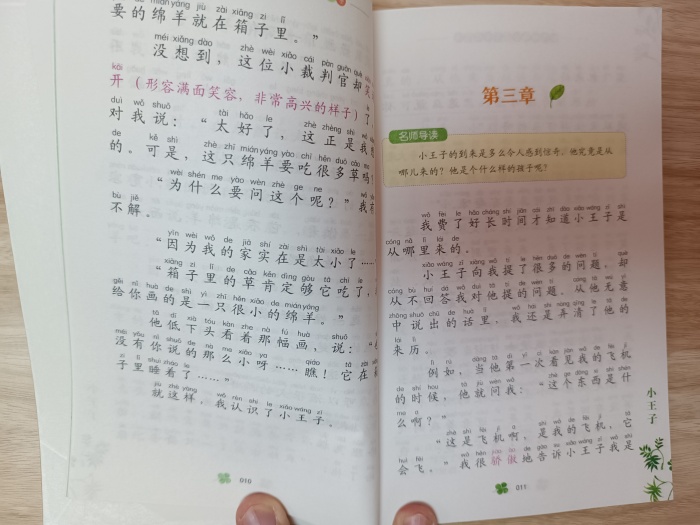 要的绵羊就在箱子里。”
没想到，这位小裁判官却笑
开（形容满面笑容，非常高兴的样子）了
对我说：“太好了，这正是我想
的。可是，这只绵羊要吃很多草吗？
“为什么要问这个呢？”我有
不解。
“因为我的家实在是太小了……
“箱子里的草肯定够它吃了，
给你画的是一只很小的绵羊。”
他低下头看着那幅画，说：“
没有你说的那么小呀……瞧！它在箱
子里睡着了……”
就这样，我认识了小王子。
010
第三章
名师导读
小王子的到来是多么令人感到惊奇。他究竟是从
哪儿来的？他是个什么样的孩子呢？
我费了好长时间才知道小王子是
从哪里来的。
小王子向我提了很多的问题，却
从不回答我对他提的问题。从他无意
中说出的话里，我还是弄清了他的
来历。
例如，当他第一次看见我的飞机
的时候，他就问我：“这个东西是什
么啊？”
“这是飞机啊，是我的飞机，它
会飞。”我很骄傲地告诉小王子我是
小王子
011